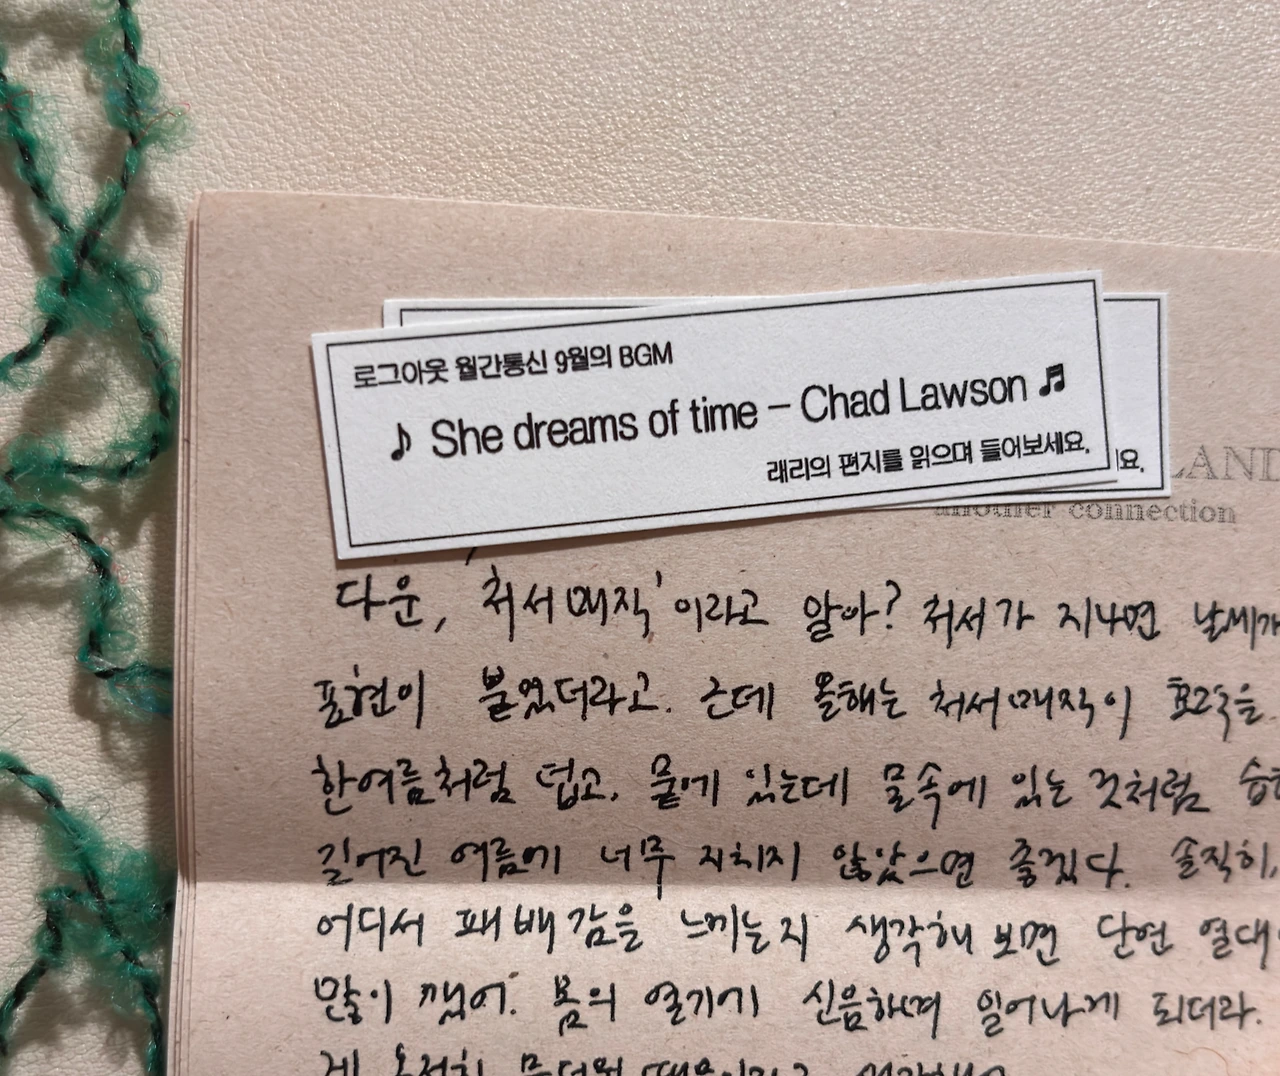 로그아웃 월간통신 9월의 BGM
♪ She dreams of time – Chad Lawson ♬
래리의 편지를 읽으며 들어보세요.
요.
LAND
another connection
다운, '처서매직'이라고 알아? 처서가 지나면 날씨가
표현이 붙었더라고. 근데 올해는 처서매직이 효력을
한여름처럼 덥고, 뭍에 있는데 물속에 있는 것처럼 습
길어진 여름에 너무 지치지 않았으면 좋겠다. 솔직히,
어디서 패배감을 느끼는지 생각해 보면 단연 열대
많이 깼어. 몸의 열기에 신음하며 일어나게 되더라.